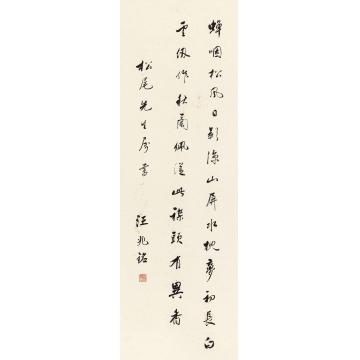 蟬咽松風日影涼山屏水枕夢初長白
雲作秋蘭佩從此襟頭有異香
松尾先生屬書 汪兆銘